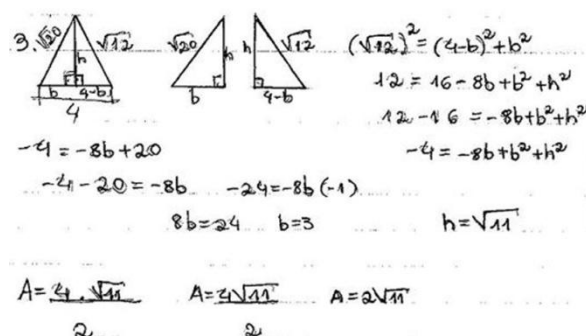 3. √20 h √12 b 4-b 4
√20 h b
h √12 4-b
(√12)² = (4-b)² + b²
12 = 16 - 8b + b² + h²
12 - 16 = -8b + b² + h²
-4 = -8b + b² + h²
-4 = -8b + 20
-4 - 20 = -8b -24 = -8b (-1)
8b = 24 b = 3 h = √11
A = 4 . √11 / 2 A = 4√11 / 2 A = 2√11